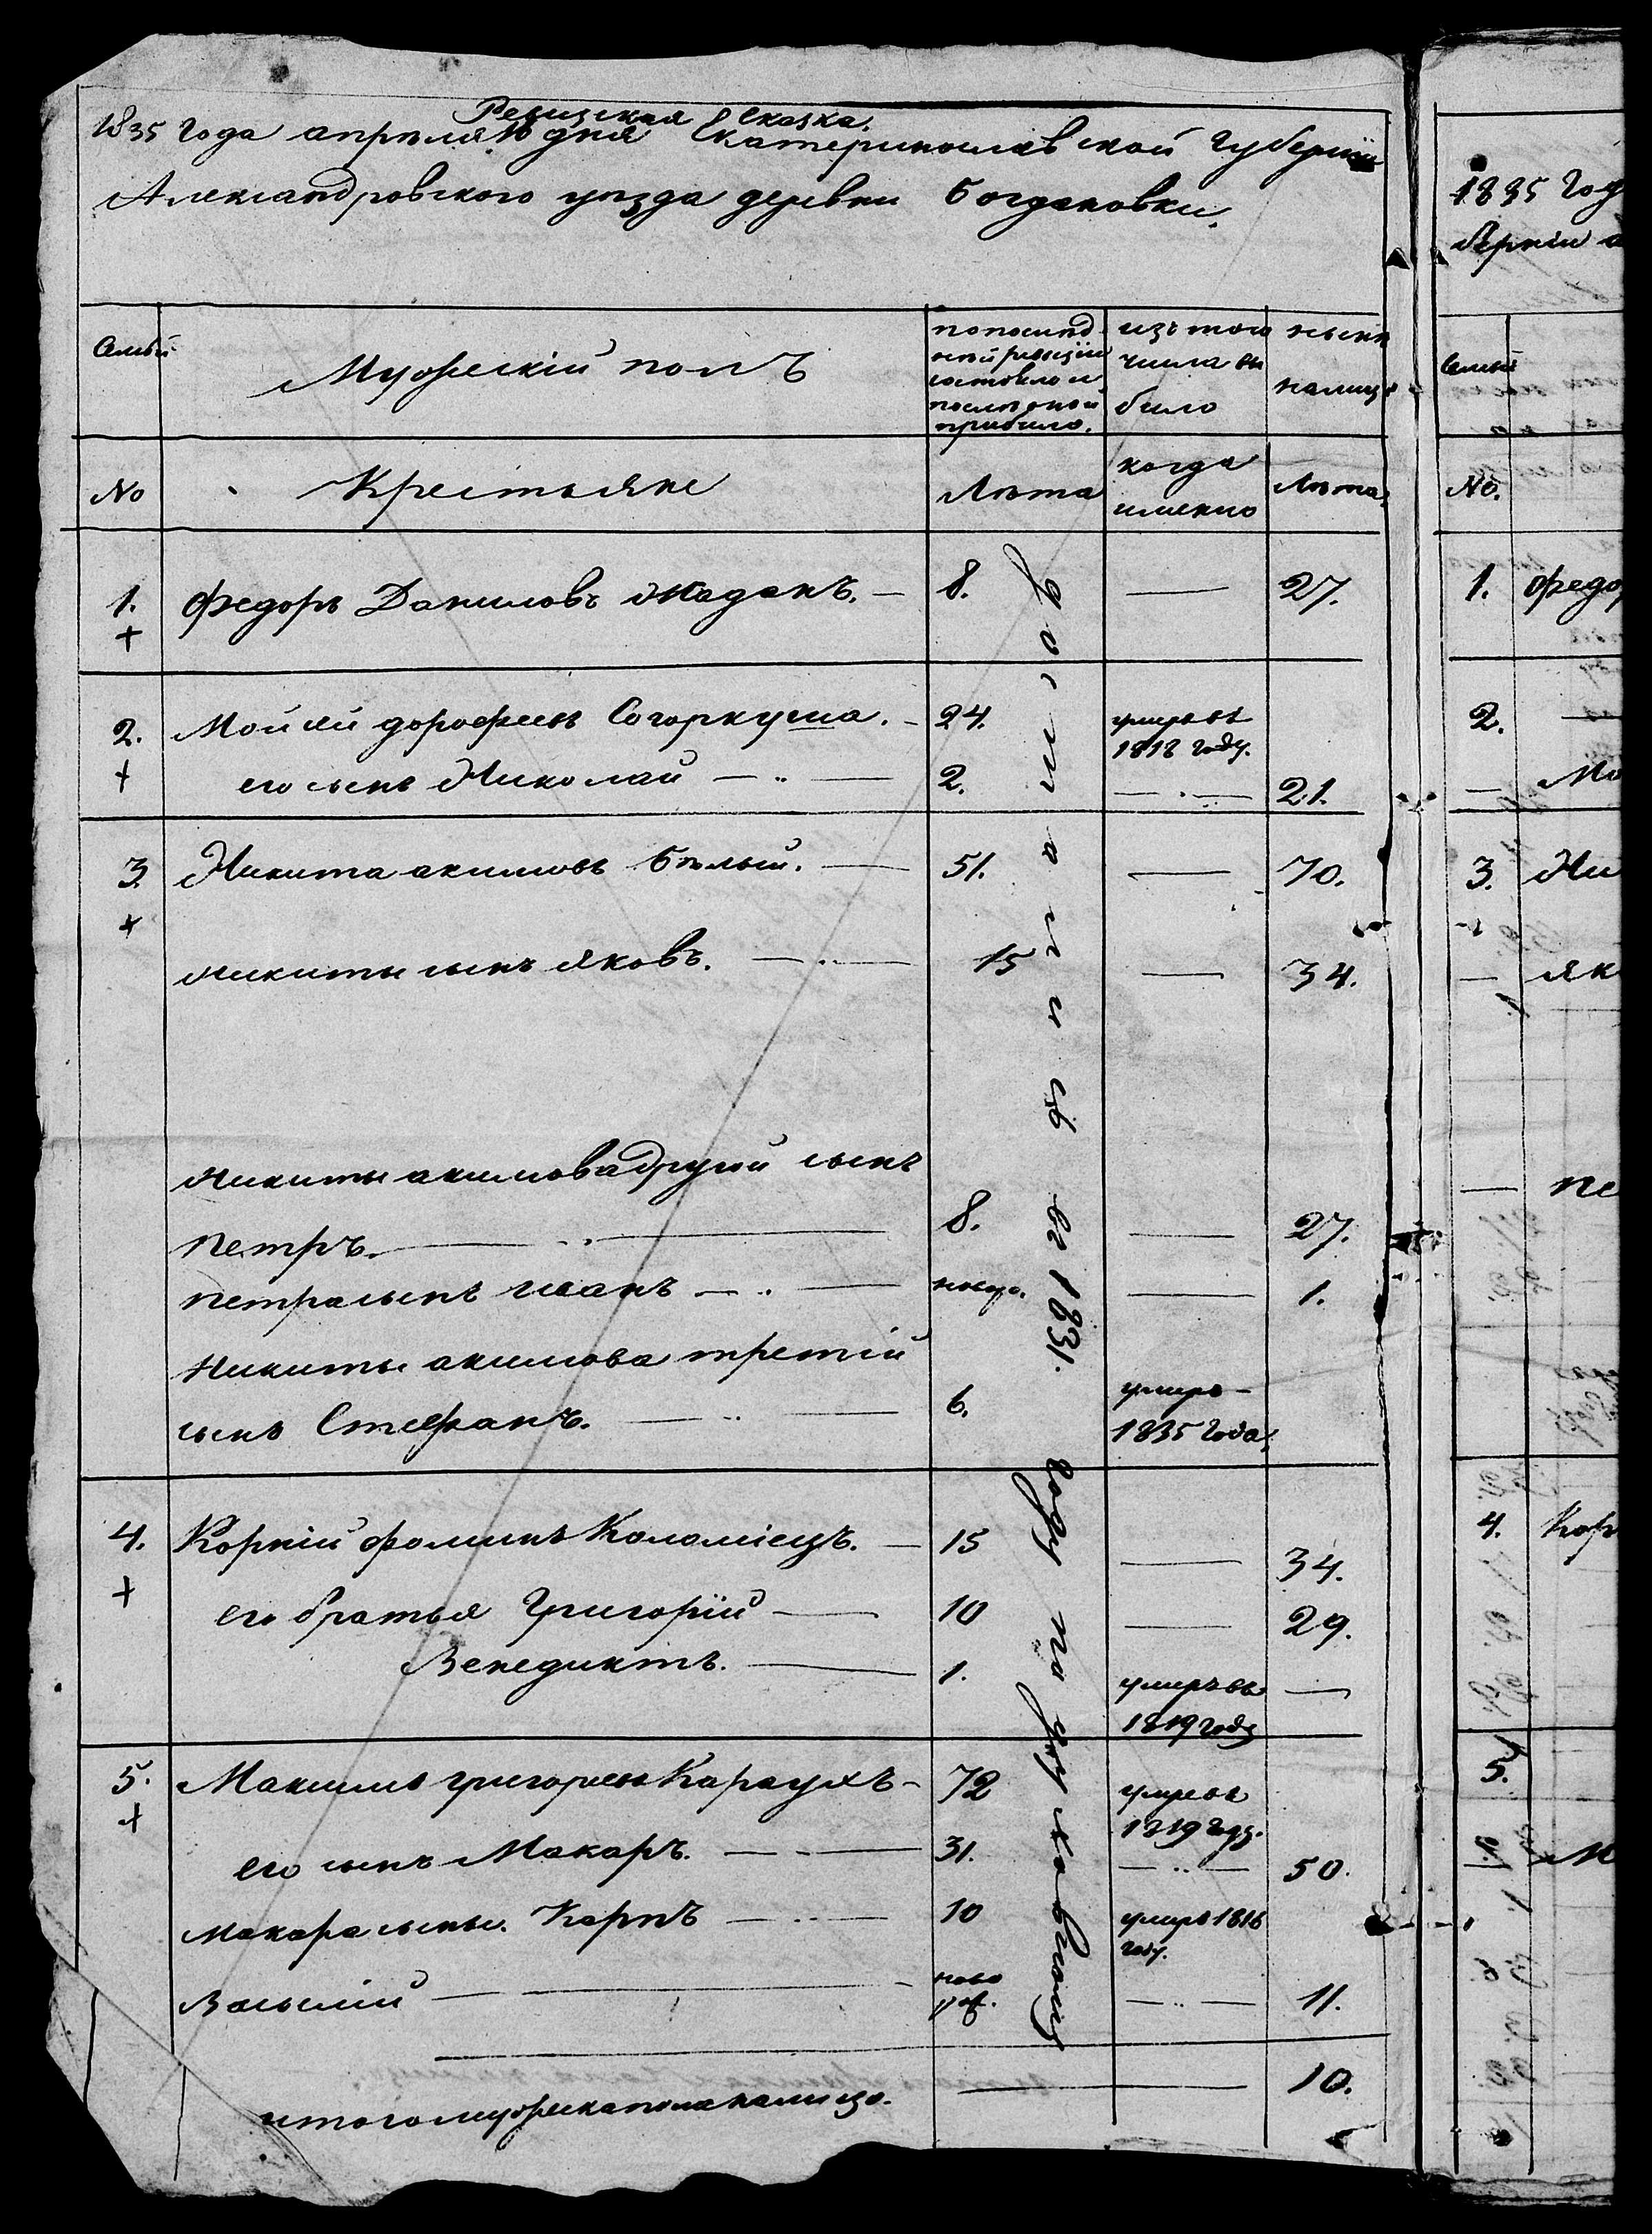 Ревизская Сказка.
1835 года апреля 10 дня Екатеринославской губернiи
Александровского уѣзда деревни Богдановки.
Семьи
Мужескiй полъ
по послѣд
ней ревизiи
состояло и
послѣ оной
прибыло.
изъ того
числа вы
было
нынѣ
налицо
№
Крестьяне
Лѣта
когда
именно
Лѣта.
1. Федоръ Даниловъ Жаданъ. — 8. — 27.
2. Мойсей Дорофеевъ — 24. умеръ въ
1818 году.
его сынъ Николай — 2. — 21.
3. Никита Акимовъ Бѣлый. — 51. — 70.
Никиты сынъ Яковъ. — 15 — 34.
Никиты Акимова другой сынъ
Петръ. — 8. — 27.
Петра сынъ Иванъ — новор. — 1.
Никиты Акимова третiй
сынъ Стефанъ. — 6. умеръ —
1835 года.
4. Корнiй Фоминъ Коломiецъ. — 15 — 34.
его братья Григорiй — 10 — 29.
Венедиктъ. — 1. умеръ въ —
1819 году
5. Максимъ Григорьевъ Караухъ — 72 умре въ
1819 году.
его сынъ Макаръ. — 31. — 50.
Макара сыны. Карпъ — 10 умеръ 1816
году.
Василiй — ново
рож. — 11.
итого мужеска пола налицо. — 10.
достались въ 1831. году по духовному
1835 Год
бернiи
Семьи
№.
1. Федор
2. —
— Ма
3. Ни
— Як
— Пе
4. Кор
5.
— М